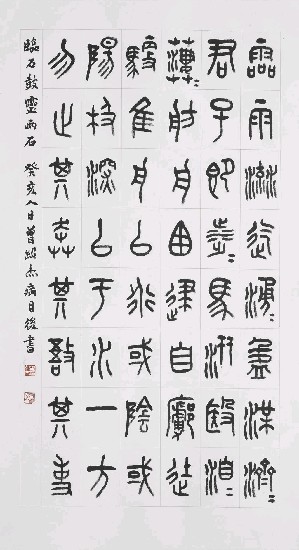 霝雨流迄湧〻盈渫濟〻
君子即涉〻馬汧殹洎〻
萋〻舫舟囪逮自廓徒
馭隹舟以行或陰或
陽极深以于水一方
勿止其奔其敔其事
臨石鼓靈雨石 癸亥人日曾紹杰病目後書